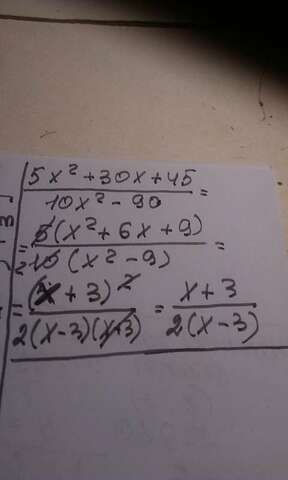 5x² + 30x + 45
10x² - 90 =
= 5(x² + 6x + 9)
2 10 (x² - 9) =
= (x + 3)² / 2(x - 3)(x + 3) = x + 3 / 2(x - 3)